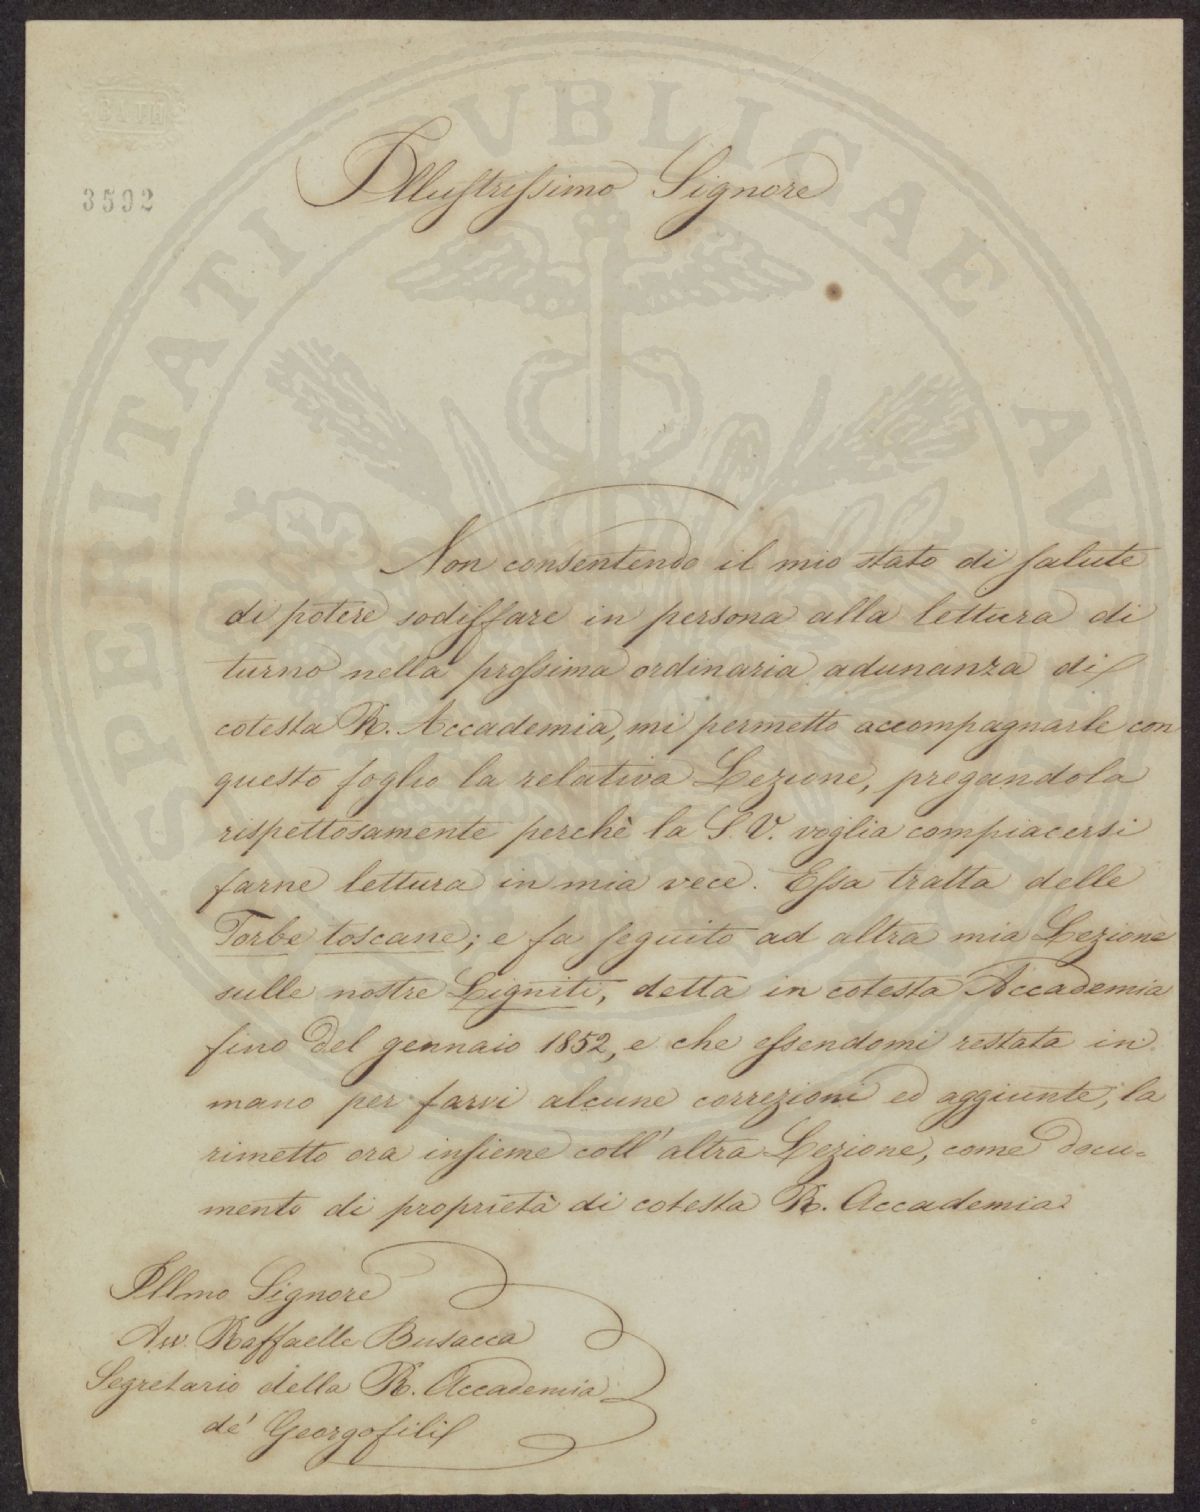 BATH
3592
PROSPERITATI PUBLICAE AUGENDAE
Illustrissimo Signore
Non consentendo il mio stato di salute
di potere sodisfare in persona alla lettura di
turno nella prossima ordinaria adunanza di
cotesta R. Accademia, mi permetto accompagnarle con
questo foglio la relativa Lezione, pregandola
rispettosamente perchè la S. V. voglia compiacersi
farne lettura in mia vece. Essa tratta delle
Torbe toscane; e fa seguito ad altra mia Lezione
sulle nostre Ligniti, detta in cotesta Accademia
fino del gennaio 1852, e che essendomi restata in
mano per farvi alcune correzioni ed aggiunte, la
rimetto ora insieme coll' altra Lezione, come docu=
mento di proprietà di cotesta R. Accademia.
Illmo Signore
Avv. Raffaelle Busacca
Segretario della R. Accademia
de' Georgofili